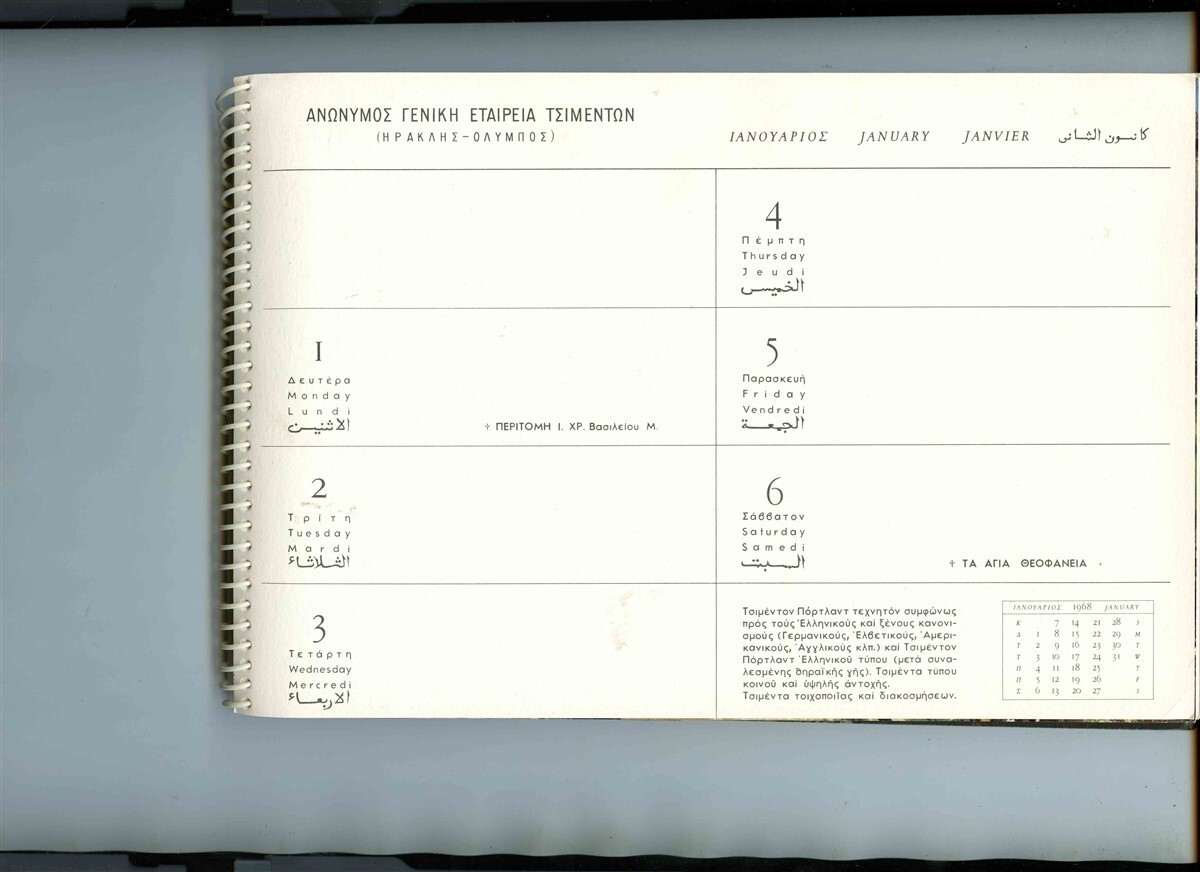 ΑΝΩΝΥΜΟΣ ΓΕΝΙΚΗ ΕΤΑΙΡΕΙΑ ΤΣΙΜΕΝΤΩΝ
(ΗΡΑΚΛΗΣ-ΟΛΥΜΠΟΣ)
ΙΑΝΟΥΑΡΙΟΣ JANUARY JANVIER كانون الثاني
1
Δευτέρα
Monday
Lundi
الاثنين
† ΠΕΡΙΤΟΜΗ Ι. ΧΡ. Βασιλείου Μ.
2
Τρίτη
Tuesday
Mardi
الثلاثاء
3
Τετάρτη
Wednesday
Mercredi
الاربعاء
4
Πέμπτη
Thursday
Jeudi
الخميس
5
Παρασκευή
Friday
Vendredi
الجمعة
6
Σάββατον
Saturday
Samedi
السبت
† ΤΑ ΑΓΙΑ ΘΕΟΦΑΝΕΙΑ
Τσιμέντον Πόρτλαντ τεχνητόν συμφώνως
πρός τούς Ἑλληνικούς καί ξένους κανονι-
σμούς (Γερμανικούς, Ἑλβετικούς, Ἀμερι-
κανικούς, Ἀγγλικούς κλπ.) καί Τσιμέντον
Πόρτλαντ Ἑλληνικοῦ τύπου (μετά συνα-
λεσμένης θηραϊκῆς γῆς). Τσιμέντα τύπου
κοινοῦ καί ὑψηλῆς ἀντοχῆς.
Τσιμέντα τοιχοποιΐας καί διακοσμήσεων.
ΙΑΝΟΥΑΡΙΟΣ 1968 JANUARY
Κ 7 14 21 28 S
Δ 1 8 15 22 29 M
Τ 2 9 16 23 30 T
Τ 3 10 17 24 31 W
Π 4 11 18 25 T
Π 5 12 19 26 F
Σ 6 13 20 27 S